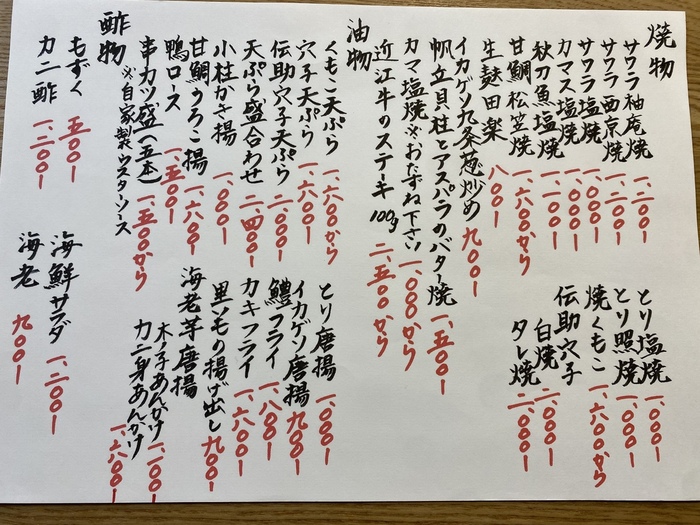 焼物
サワラ柚庵焼 一、二〇〇ー
サワラ西京焼 一、二〇〇ー
サワラ塩焼 一、〇〇〇ー
カマス塩焼 一、〇〇〇ー
秋刀魚塩焼 一、〇〇〇ー
甘鯛松笠焼 一、六〇〇から
生麩田楽 八〇〇ー
イカゲソ九条葱炒め 九〇〇ー
帆立貝柱とアスパラのバター焼 一、五〇〇ー
カマ塩焼※おたずね下さい 一、〇〇〇から
近江牛のステーキ 100g 二、五〇〇から
とり塩焼 一、〇〇〇ー
とり照焼 一、〇〇〇ー
焼くもこ 一、六〇〇から
伝助穴子
白焼 二、〇〇〇ー
タレ焼 二、〇〇〇ー
油物
くもこ天ぷら 一、六〇〇から
穴子天ぷら 一、六〇〇ー
伝助穴子天ぷら 二、〇〇〇ー
天ぷら盛合わせ 二、四〇〇ー
小柱かき揚 一、〇〇〇ー
甘鯛うろこ揚 一、六〇〇ー
鴨ロース 一、五〇〇ー
串カツ盛(五本) 一、五〇〇から
※自家製ウスターソース
とり唐揚 一、〇〇〇ー
イカゲソ唐揚 九〇〇ー
鱧フライ 一、八〇〇ー
カキフライ 一、六〇〇ー
里いもの揚げ出し 九〇〇ー
海老芋唐揚
木の子あんかけ 一、一〇〇ー
カニ身あんかけ 一、六〇〇ー
酢物
もずく 五〇〇ー
カニ酢 一、三〇〇ー
海鮮サラダ 一、二〇〇ー
海老 九〇〇ー